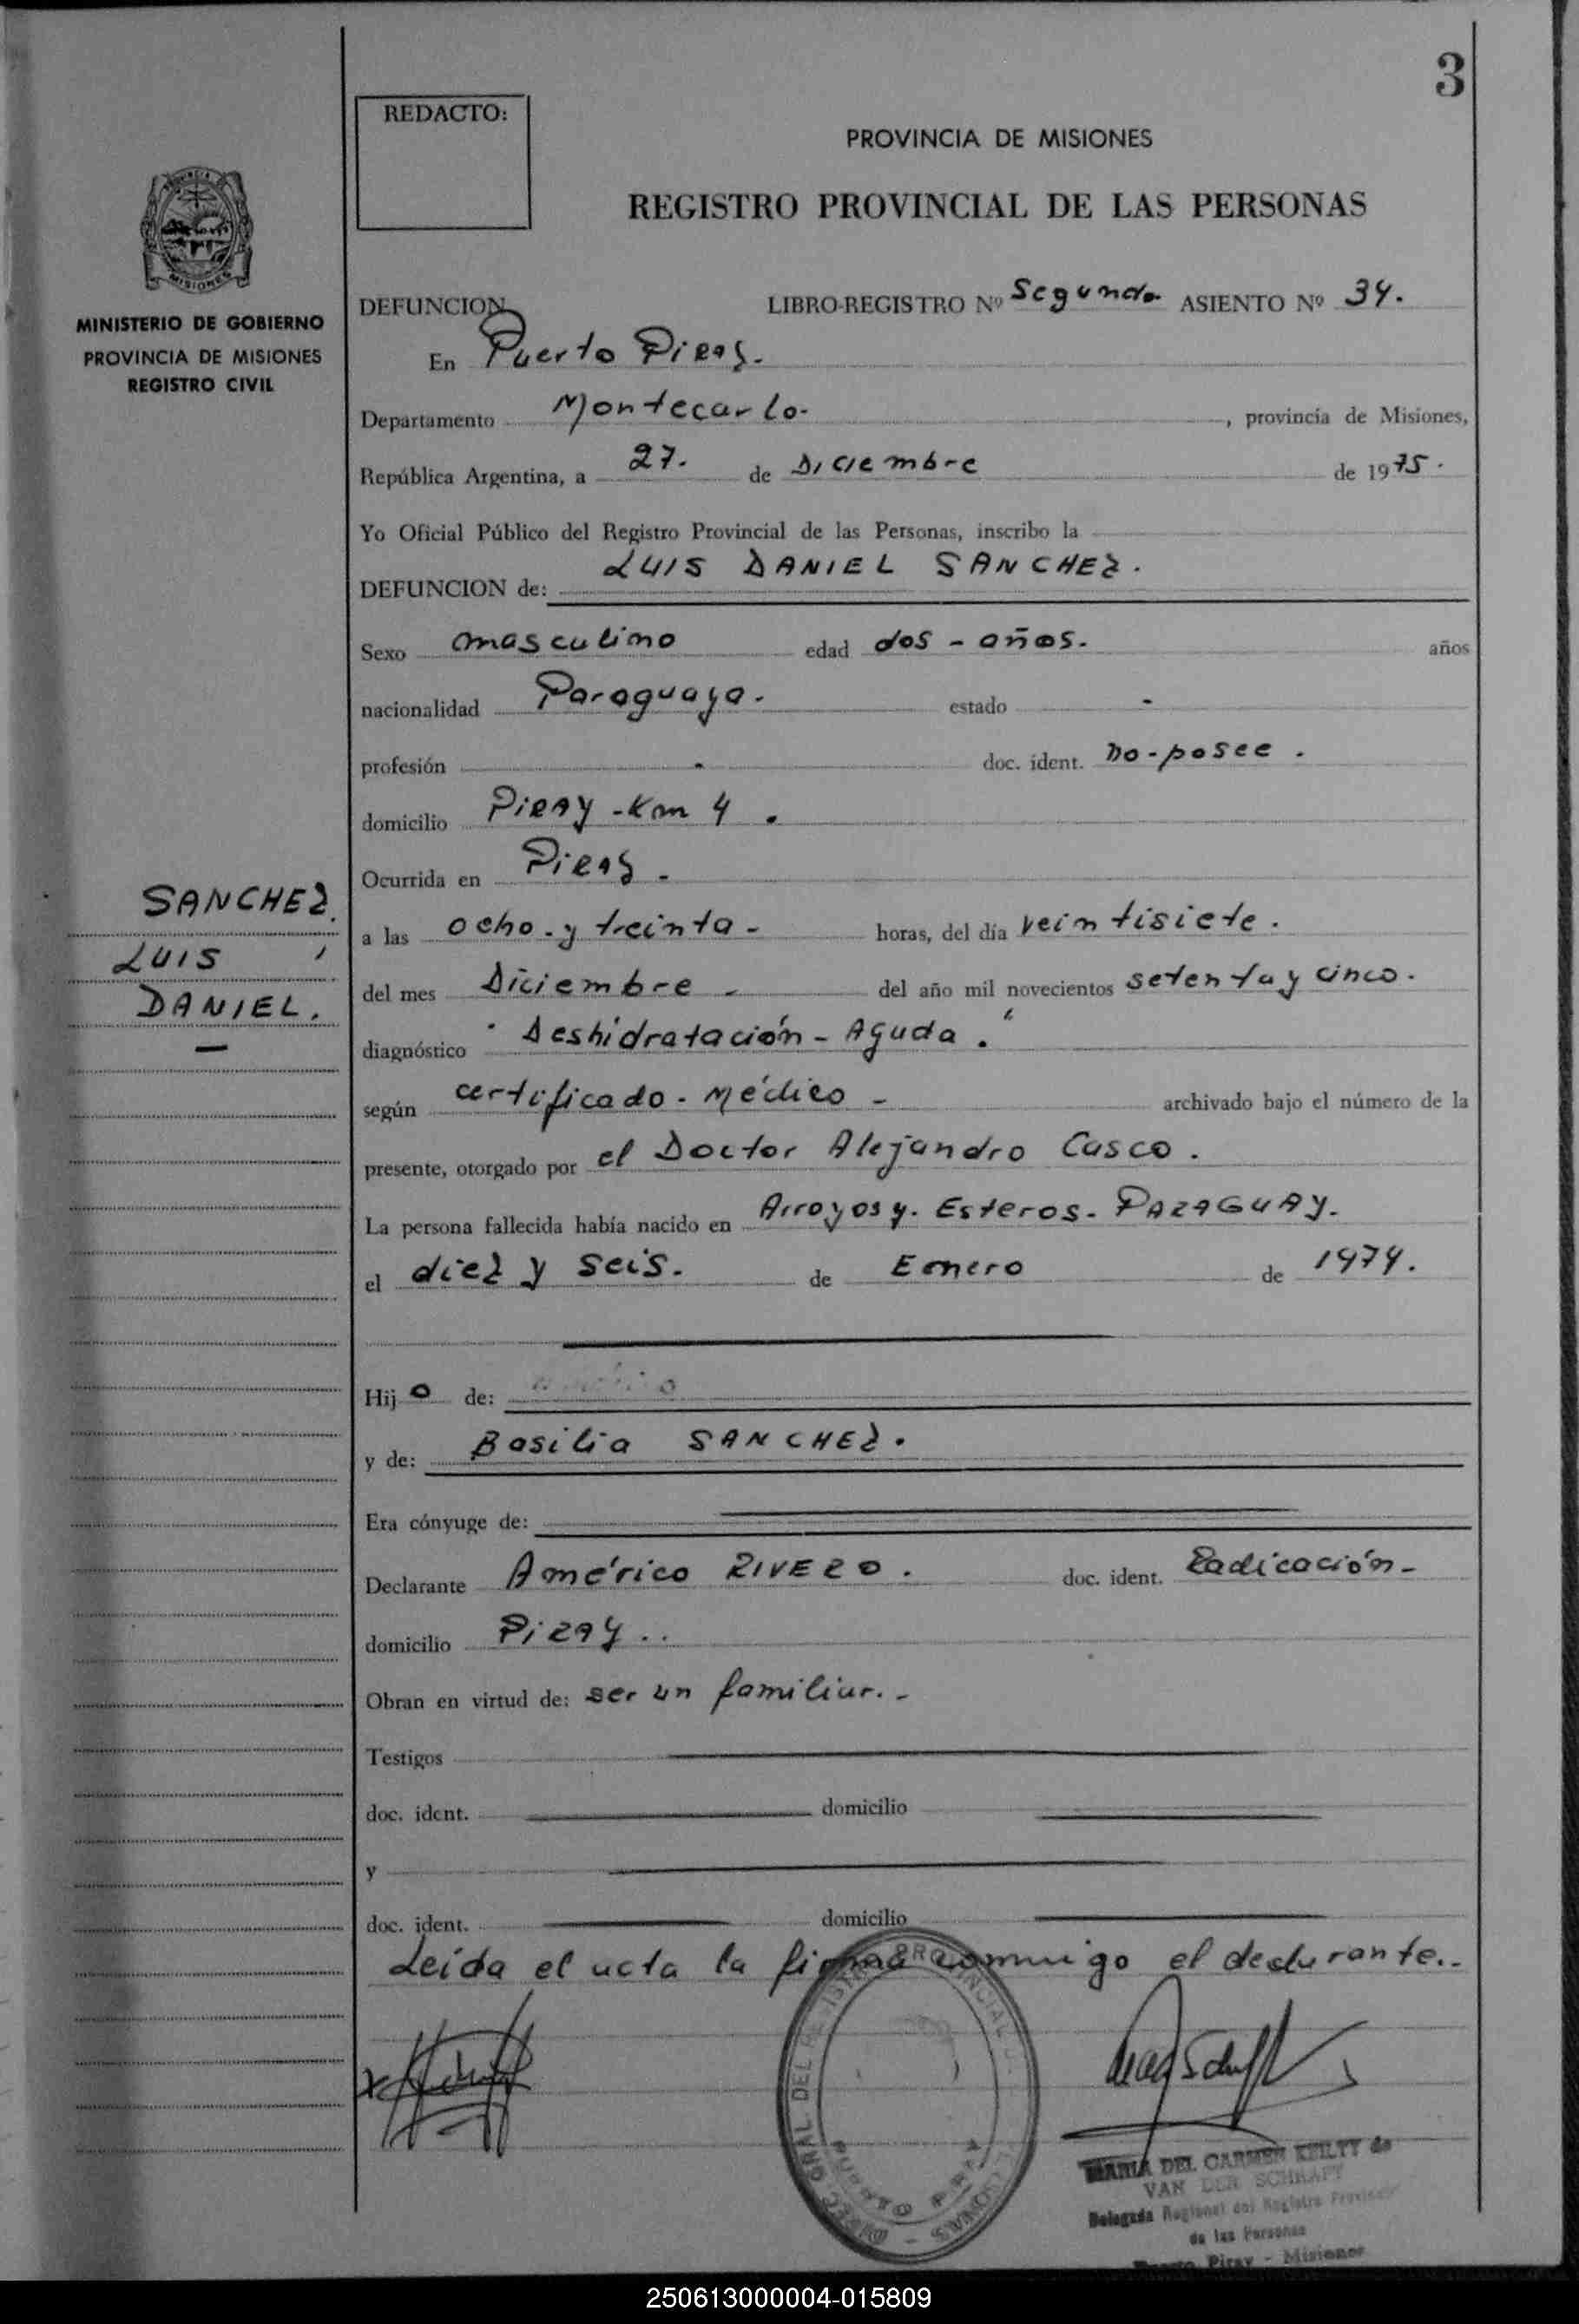 3
REDACTO:
PROVINCIA DE MISIONES
REGISTRO PROVINCIAL DE LAS PERSONAS
MISIONES
MINISTERIO DE GOBIERNO
PROVINCIA DE MISIONES
REGISTRO CIVIL
DEFUNCION LIBRO-REGISTRO Nº Segundo. ASIENTO Nº 34.
En Puerto Piray.
Departamento Montecarlo. , provincia de Misiones,
República Argentina, a 27. de Diciembre de 1975.
Yo Oficial Público del Registro Provincial de las Personas, inscribo la
DEFUNCION de: LUIS DANIEL SANCHEZ.
Sexo masculino edad dos - años. años
nacionalidad Paraguaya. estado -
profesión - doc. ident. no-posee.
domicilio Piray - Km 4.
Ocurrida en Piray -
SANCHEZ,
LUIS
DANIEL.
a las ocho - y treinta - horas, del día veintisiete.
del mes Diciembre - del año mil novecientos setenta y cinco.
diagnóstico "Deshidratación - Aguda."
según certificado - Médico - archivado bajo el número de la
presente, otorgado por el Doctor Alejandro Casco.
La persona fallecida había nacido en Arroyos y Esteros - PARAGUAY.
el diez y seis. de Enero de 1974.
Hijo de:
y de: Basilia SANCHEZ.
Era cónyuge de:
Declarante Américo RIVERO. doc. ident. Radicación -
domicilio Piray..
Obran en virtud de: ser un familiar. -
Testigos
doc. ident. domicilio
y
doc. ident. domicilio
Leída el acta la firma conmigo el declarante..
MARIA DEL CARMEN KEILTY de
VAN DER SCHRAFT
Delegada Regional del Registro Provincial
de las Personas
Puerto Piray - Misiones
250613000004-015809